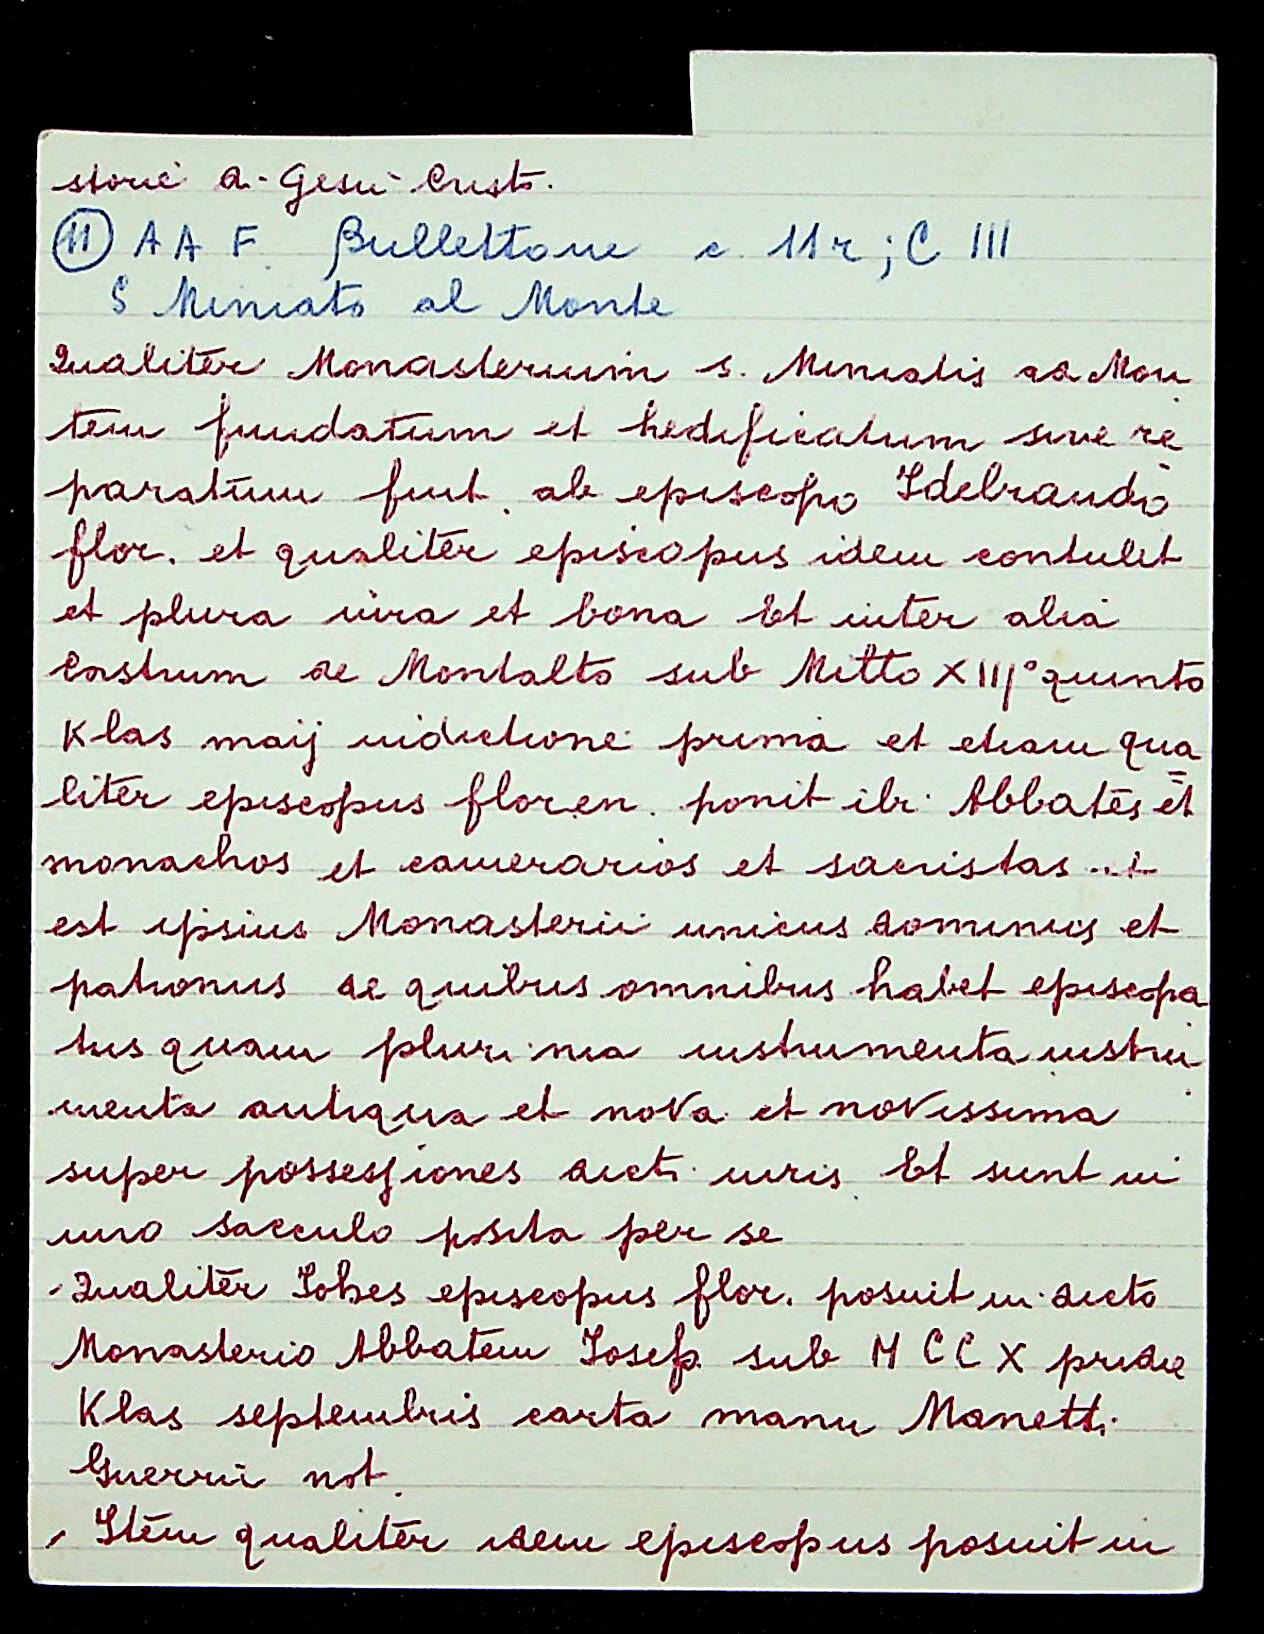 storie a. Gesù Cristo.
(11) A A F. Bullettone c. 11 r ; C III
S Miniato al Monte
Qualiter Monasterium s. Miniatis ad Mon
tem fundatum et hedificatum sive re
paratum fuit ab episcopo Idebrando
flor. et qualiter episcopus idem contulit
et plura iura et bona Et inter alia
Castrum de Montalto sub Mitto XIIJ° quinto
Klas maij indictione prima et etiam qua
=
liter episcopus floren. ponit ibi Abbates et
monachos et camerarios et sacristas ...
est ipsius Monasterii unicus dominus et
patronus de quibus omnibus habet episcopa
tus quam plurima instrumenta instru
menta antiqua et nova et novissima
super possessiones dicti iuris Et sunt in
uno sacculo posita per se
- Qualiter Iohes episcopus flor. posuit in dicto
Monasterio Abbatem Iosep. sub M C C X pridie
Klas septembris carta manu Manetti
Guerrii not.
, Item qualiter idem episcopus posuit in